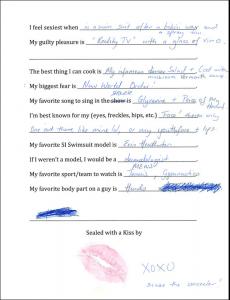 I feel sexiest when in a swim suit after a bikini wax and
a spray tan
My guilty pleasure is "Reality TV" with a glass of vino
The best thing I can cook is My infamous Salad + Cod with
My biggest fear is New World Order
My favorite song to sing in the shower is Glycerine +
I'm best known for my (eyes, freckles, hips, etc.) Face
one out there like mine lol, or my + lips
My favorite SI Swimsuit model is Erin Heatherton
If I weren't a model, I would be a dermatologist
My favorite sport/team to watch is Tennis, Gymnastics
My favorite body part on a guy is Hands
Sealed with a Kiss by
XOXO